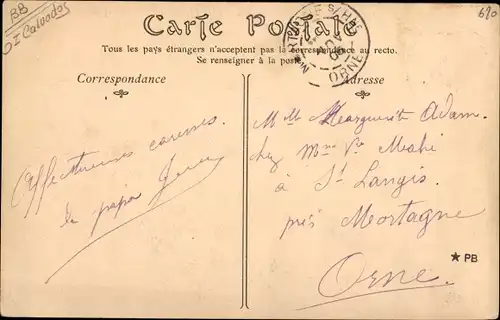 BB
OI Calvados
620
Carte Postale
Tous les pays étrangers n'acceptent pas la correspondance au recto.
Se renseigner à la poste.
Correspondance
Adresse
ORNE
Affectueuses caresses.
papa
Melle Marguerite Adam.
chez Mme Vve
à St Langis.
près Mortagne
Orne.
★ PB